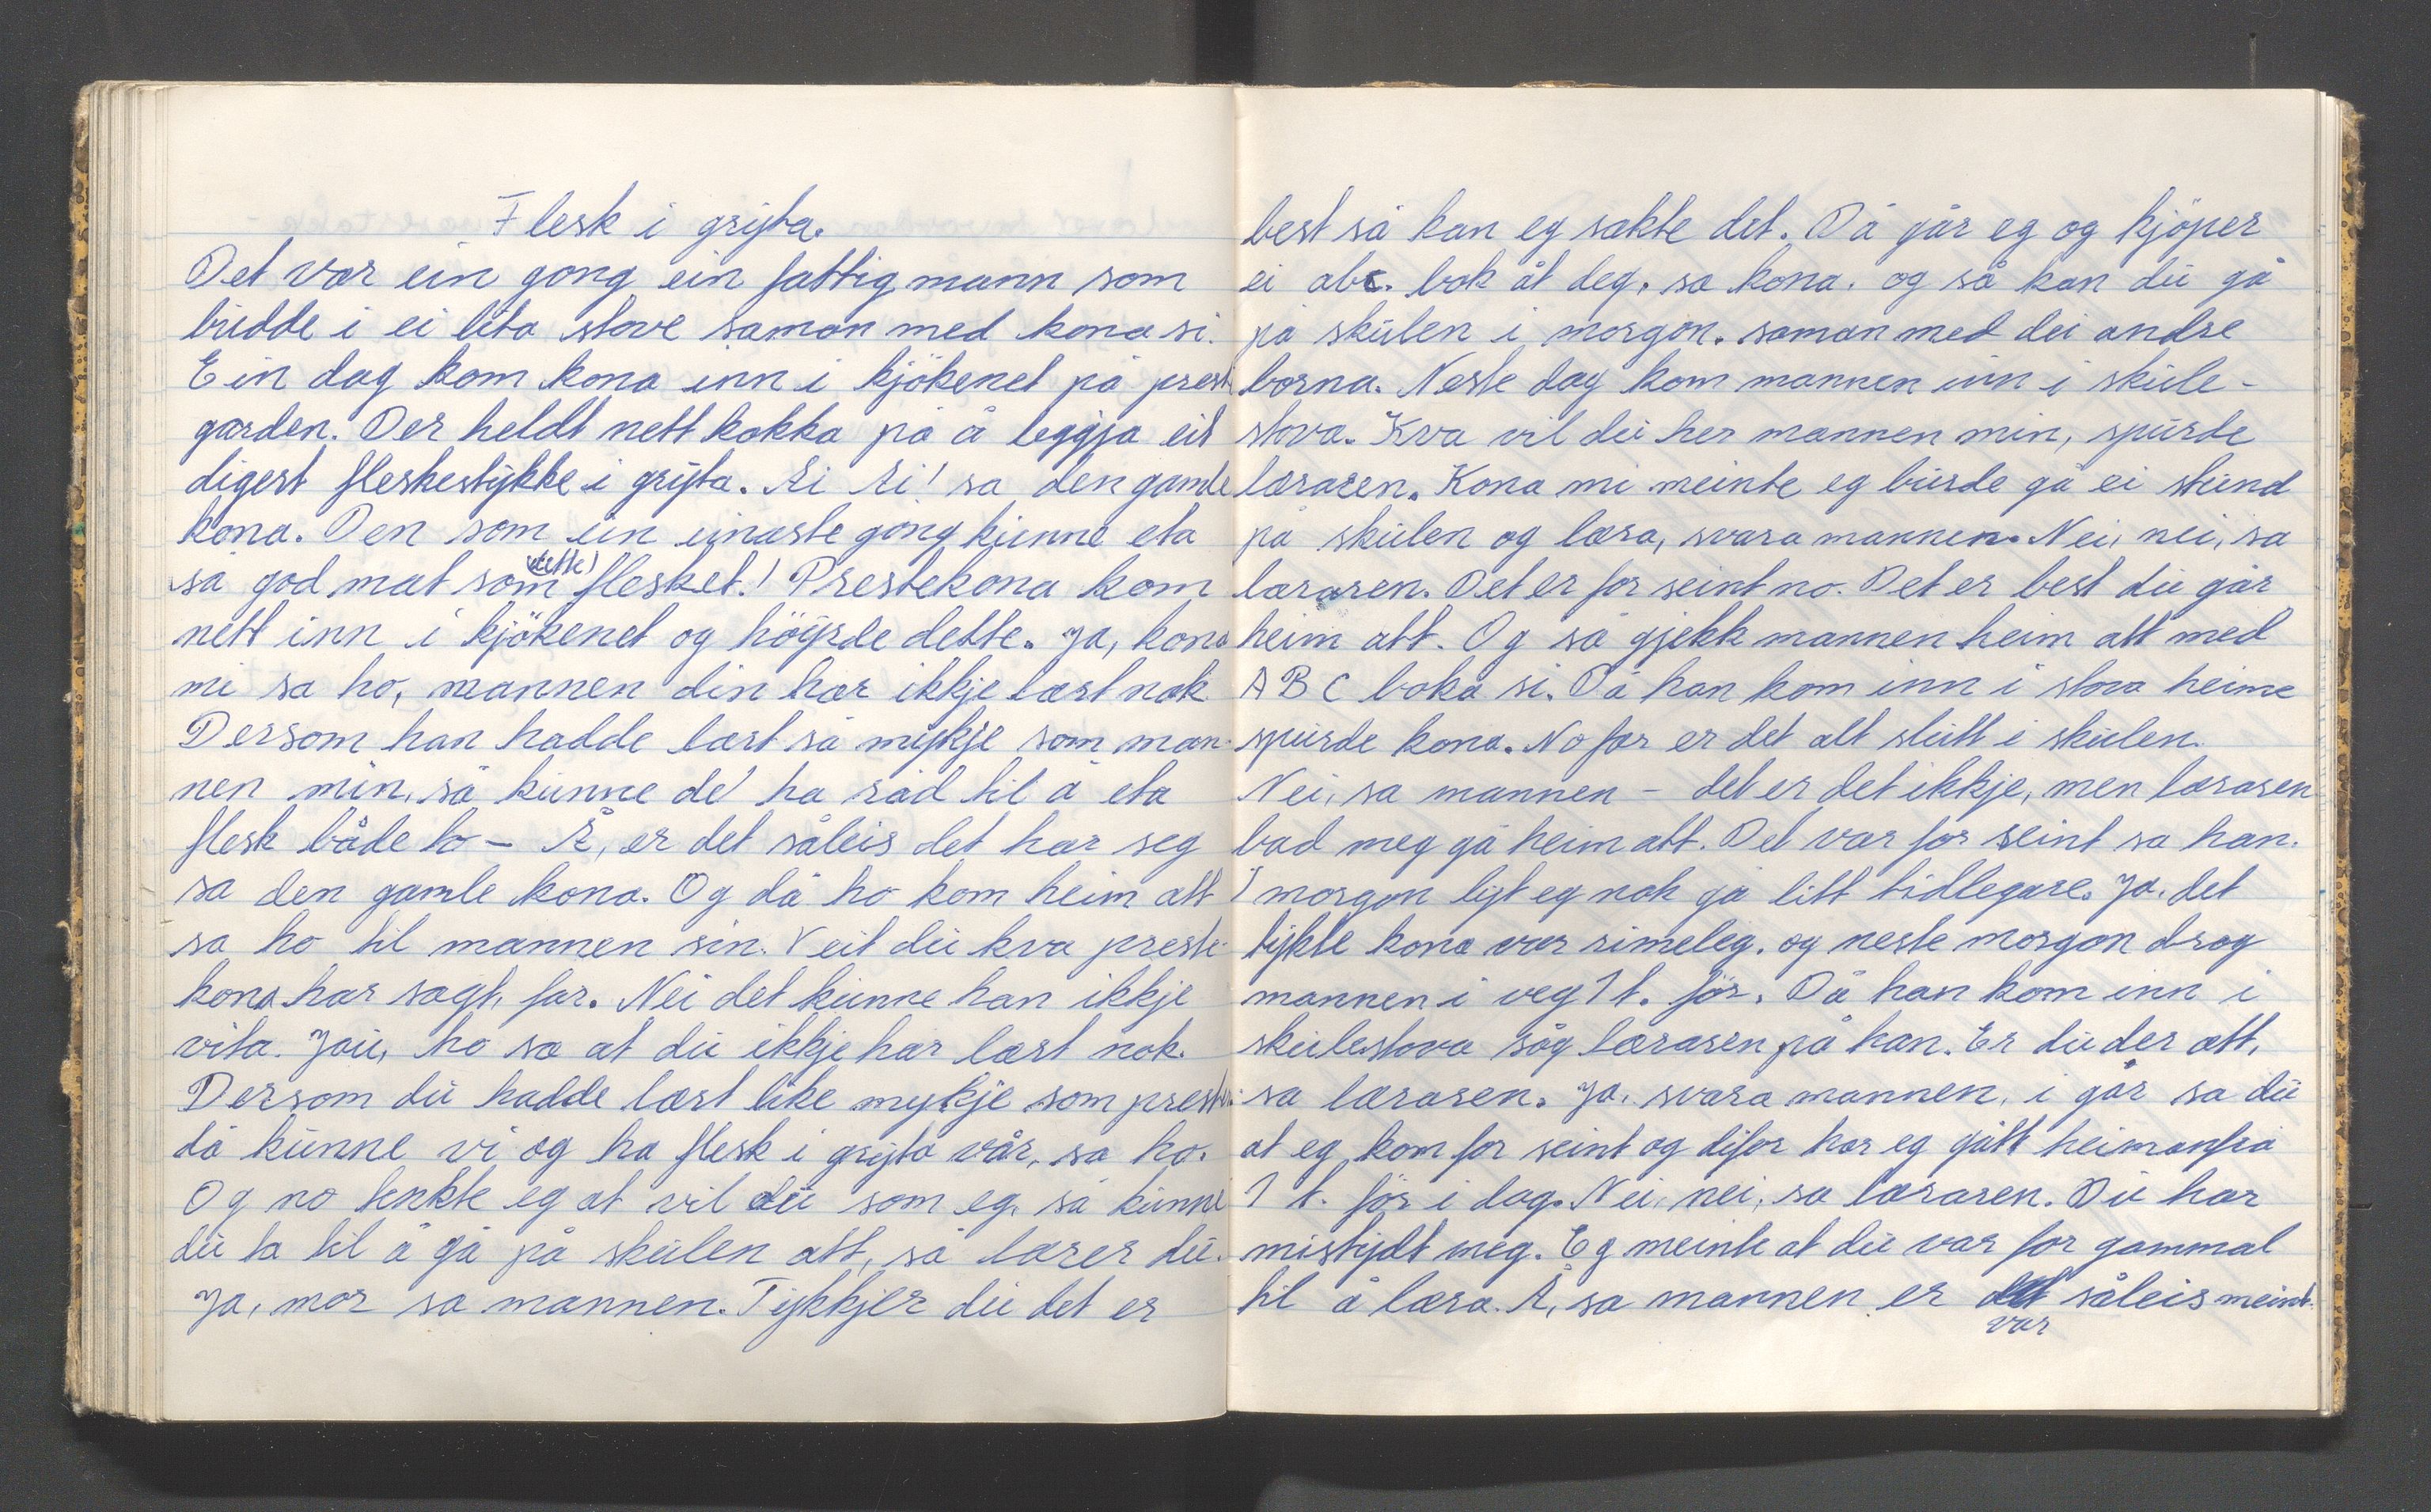 Flesk i gryta.
Det var ein gong ein fattig mann som
budde i ei lita stove saman med kona si.
Ein dag kom kona inn i kjökenet på prest-
garden. Der heldt nett kokka på å leggja eit
digert fleskestykke i gryta. Ai Ai! sa den gamle
kona. Den som ein einaste gong kunne eta
så god mat som (dette) flesket! Prestekona kom
nett inn i kjökenet og höyrde dette. Ja, kona
mi sa ho, mannen din har ikkje lært nok
Dersom han hadde lært så mykje som man-
nen min, så kunne de ha råd til å eta
flesk både to - Å, er det såleis det har seg
sa den gamle kona. Og då ho kom heim att
sa ho til mannen sin. Veit du kva preste-
kona har sagt, far. Nei det kunne han ikkje
vita. Jau, ho sa at du ikkje har lært nok.
Dersom du hadde lært like mykje som prest
då kunne vi og ha flesk i gryta vår, sa ho.
Og no tenkte eg at vil du som eg, så kunne
du ta til å gå på skulen att, så lærer du.
Ja, mor sa mannen. Tykkjer du det er
best så kan eg sakte det. Då går eg og kjöper
ei abc. bok åt deg, sa kona. og så kan du gå
på skulen i morgon. saman med dei andre
borna. Neste dag kom mannen inn i skule-
stova. Kva vil du her mannen min, spurde
læraren. Kona mi meinte eg burde gå ei stund
på skulen og læra, svara mannen. Nei, nei, sa
læraren. Det er for seint no. Det er best du går
heim att. Og så gjekk mannen heim att med
ABC boka si. Då han kom inn i stova heime
spurde kona. No far er det alt slutt i skulen.
Nei, sa mannen - det er det ikkje, men læraren
bad meg gå heim att. Det var for seint sa han.
I morgon lyt eg nok gå litt tidlegare. Ja, det
tykte kona var rimeleg. og neste morgon drog
mannen i veg 1 t. för. Då han kom inn i
skulestova såg læraren på han. Er du der att,
sa læraren. Ja, svara mannen, i går sa du
at eg kom for seint og difor har eg gått heimanfrå
1 t. för i dag. Nei, nei, sa læraren. Du har
mistydt meg. Eg meinte at du var for gammal
til å læra. Å, sa mannen er det såleis meint.
var